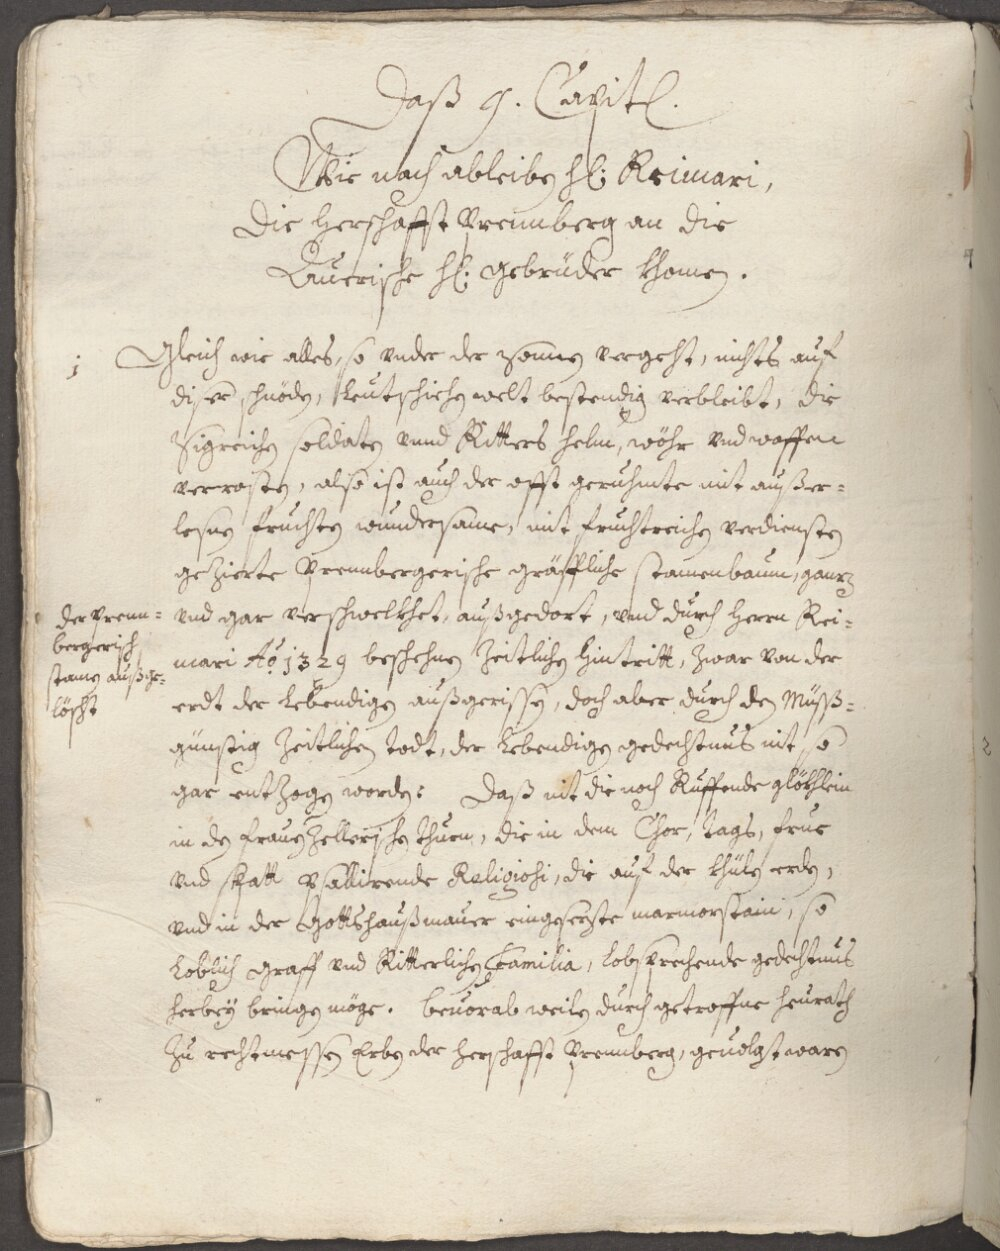 Daß 9. Capitl.
Wie nach ableiben hl: Reimari,
die Herschafft Prennberg an die
Auerische hl: Gebrüder khomen.
1 Gleich wie alles, so vnder der Sonnen vergeht, nichts auf
diser schnöden, welt bestendig verbleibt, die
Sigreichen soldaten vnnd Ritters helm, wöhr vnd waffen
verrosten, also ist auch der offt geruhmte mit außer=
lesnen fruchten wundersame, mit fruchtreichen verdiensten
gezierte Prennbergerische gräffliche stamenbaum, ganz
vnd gar verschwelkhet, außgedort, vnd durch Herrn Rei=
mari Ao 1329 beschehnen Zeitlichen hintritt, zwar von der
erdt der Lebendigen außgerissen, doch aber durch den Müß=
günstig Zeitlichen todt, der Lebendigen gedechtnus nit so
gar entzogen worden: Daß nit die noch Ruffende glökhlein
in den frauenzellerischen thurn, die in dem Chor, tags, frue
vnd spatt psallirende Religiosi, die auf der khülen erden,
vnd in der Gottshaußmauer eingesezte marmorstain, so
Loblich Graff vnd Ritterlichen Familia, lobsprechende gedechtnus
herbey bringen möge. beuorab weilen durch getroffne heurath
zu rechtmessen Erben der Herschafft Prennberg, geuolgt waren
der Prenn=
bergerisch
stamen außge=
löscht